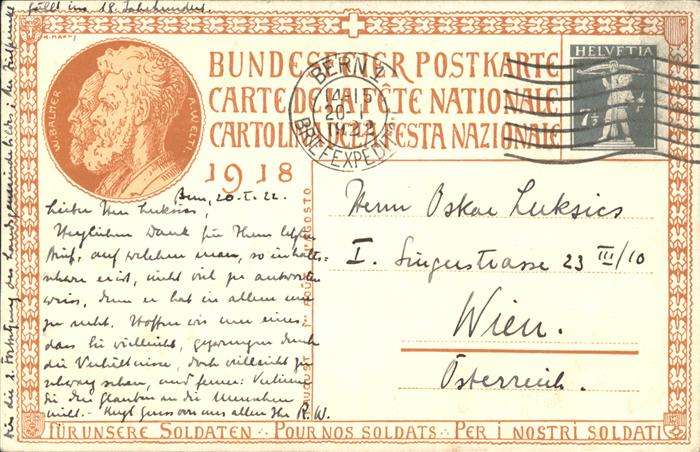 fällt ins 18. Jahrhundert.
BUNDESFEIER POSTKARTE
CARTE DE LA FÊTE NATIONALE
CARTOLINA DELLA FESTA NAZIONALE
1918
W. BALMER
A. WELTI
HELVETIA
7½
BERN 1
20. I.
22
BRIEFEXPED.
Bern, 20. I. 22.
Lieber Herr Luksics,
Herzlichen Dank für Ihren letzten
Brief, auf welchen man, so inhalts-
schwer er ist, nicht viel zu antworten
weiss, denn er hat in allem nur
zu recht. Hoffen wir nur eines
dass Sie vielleicht, gezwungen durch
die Verhältnisse, doch vielleicht zu
schwarz sehen, und ferner: Verlieren
Sie den Glauben an die Menschen
nicht. - Hrzl. Gruss von uns allen Ihr R. W.
Herrn Oskar Luksics
I. Singerstrasse 23 III/10
Wien.
Österreich.
FÜR UNSERE SOLDATEN · POUR NOS SOLDATS · PER I NOSTRI SOLDATI